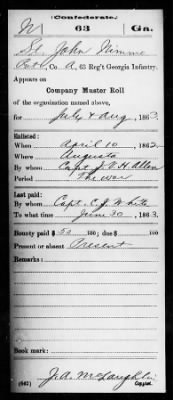 (Confederate.)
N 63 Ga.
St. John Nimmo
Pvt, Co. A, 63 Reg't Georgia Infantry.
Appears on
Company Muster Roll
of the organization named above,
for July & Aug, 1863.
Enlisted:
When April 10, 1862.
Where Augusta
By whom Capt J. V. H. Allen
Period The war
Last paid:
By whom Capt. C. J. White
To what time June 30, 1863.
Bounty paid $ 50 100; due $ 100
Present or absent Present
Remarks:
Book mark:
J. A. McLaughlin
(642) Copyist.